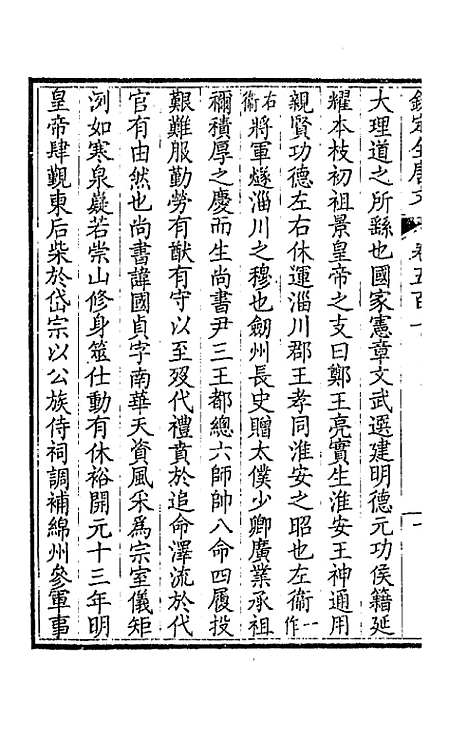 欽定全唐文 卷五百
大理道之所繇也國家憲章文武選建明德元功侯籍延
耀本枝初祖景皇帝之支曰鄭王亮實生淮安王神通用
親賢功德左右休運淄川郡王孝同淮安之昭也左衞一作
右衞將軍燧淄川之穆也劒州長史贈太僕少卿廣業承祖
禰積厚之慶而生尚書尹三王都總六師帥八命四履投
艱難服勤勞有猷有守以至歿代禮賁於追命澤流於代
官有由然也尚書諱國貞字南華天資風采爲宗室儀矩
洌如寒泉嶷若崇山修身筮仕動有休裕開元十三年明
皇帝肆覲東后柴於岱宗以公族侍祠調補綿州參軍事